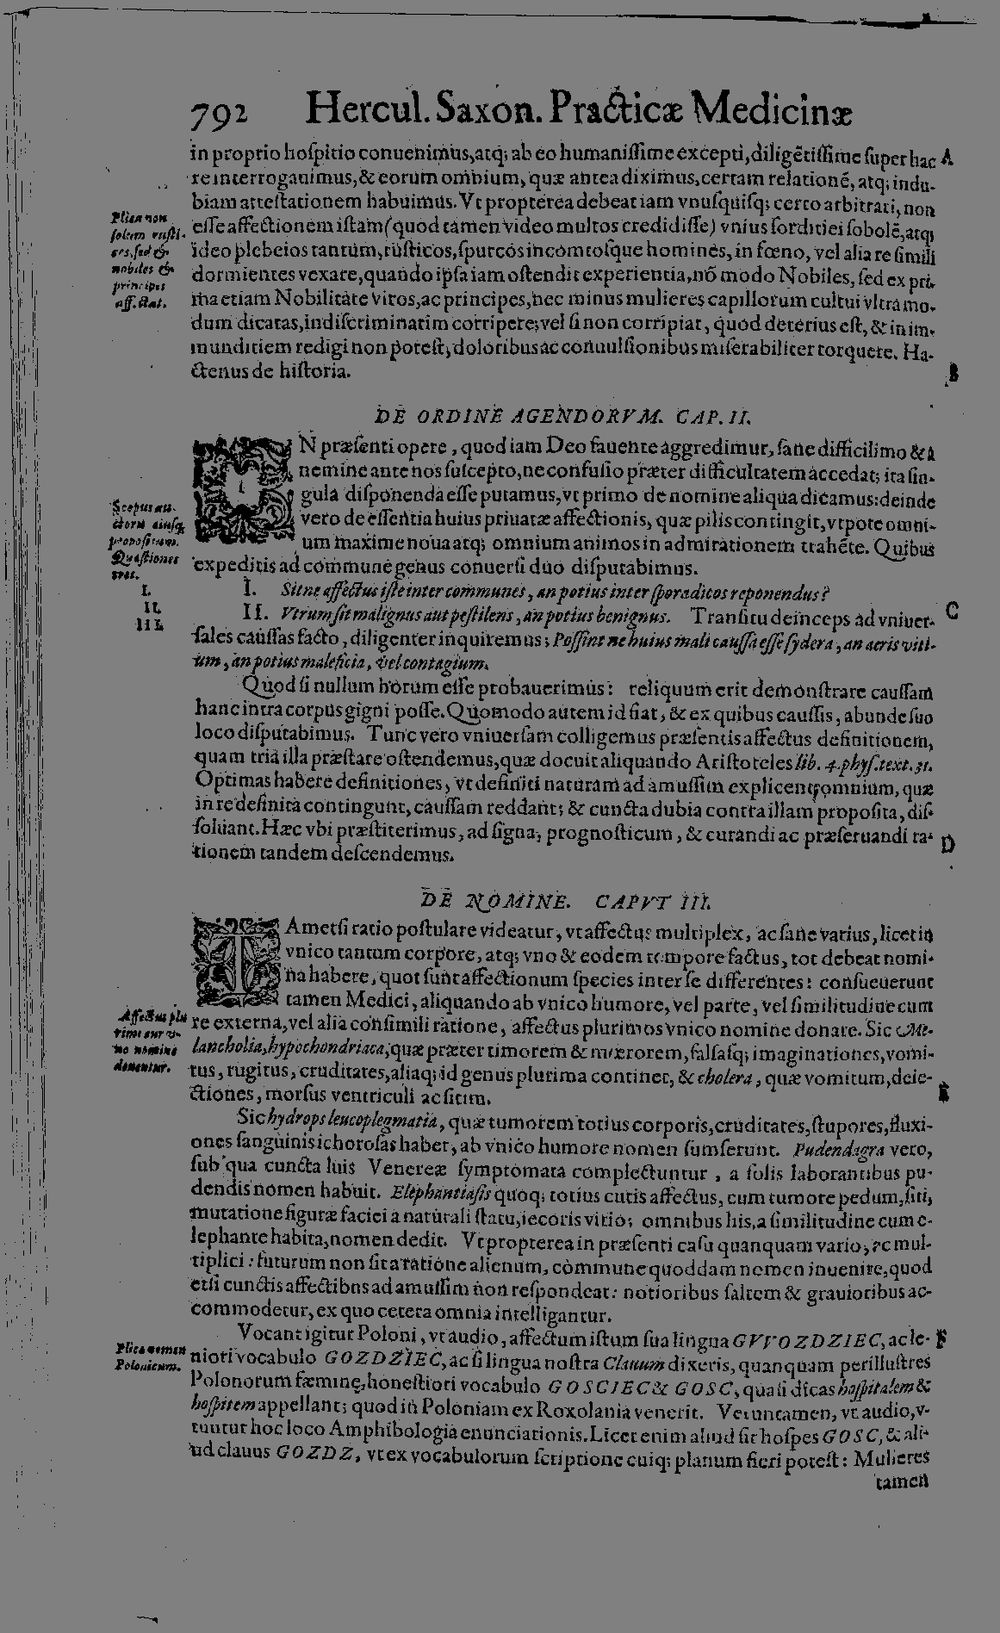 792 Hercul. Saxon. Practicæ Medicinæ
in proprio hoſpitio conuenimus, atq; ab eo humaniſſime excepti, diligẽtiſſime ſuper hac A
re interrogauimus, & eorum omnium, quæ antea diximus, certam relationẽ, atq; indu-
biam atteſtationem habuimus. Vt propterea debeat iam vnuſquiſq; certo arbitrari, non
Plica non
ſolum ruſti-
cos, ſed &
nobiles &
principes
affectat.
eſſe affectionem iſtam (quod tamen video multos credidiſſe) vnius ſorditiei ſobolẽ, atq;
ideo plebeios tantum, ruſticos, ſpurcos incomtoſque homines, in fœno, vel alia re ſimili
dormientes vexare, quando ipſa iam oſtendit experientia, nõ modo Nobiles, ſed ex pri-
ma etiam Nobilitate viros, ac principes, nec minus mulieres capillorum cultui vltra mo-
dum dicatas, indiſcriminatim corripere; vel ſi non corripiat, quod deterius eſt, & in im-
munditiem redigi non poteſt, doloribus ac conuulſionibus miſerabiliter torquere. Ha-
ctenus de hiſtoria. B
DE ORDINE AGENDORVM. CAP. II.
IN præſenti opere, quod iam Deo fauente aggredimur, ſane difficilimo & à
nemine ante nos ſuſcepto, ne confuſio præter difficultatem accedat; ita ſin-
gula diſponenda eſſe putamus, vt primo de nomine aliqua dicamus: deinde
vero de eſſentia huius priuatæ affectionis, quæ pilis contingit, vtpote omni-
um maxime noua atq; omnium animos in admirationem trahẽte. Quibus
Scopus au-
ctoris eiuſq;
propoſitum.
Quæſtiones
tres.
I.
II.
III.
expeditis ad commune genus conuerſi duo diſputabimus.
I. Sitne affectus iſte inter communes, an potius inter ſporadicos reponendus?
II. Vtrum ſit malignus aut peſtilens, an potius benignus. Tranſitu deinceps ad vniuer- C
ſales cauſſas facto, diligenter inquiremus; Poſſint ne huius mali cauſſa eſſe ſydera, an aeris viti-
um, an potius maleficia, vel contagium.
Quod ſi nullum horum eſſe probauerimus: reliquum erit demonſtrare cauſſam
hanc intra corpus gigni poſſe. Quomodo autem id fiat, & ex quibus cauſſis, abunde ſuo
loco diſputabimus. Tunc vero vniuerſam colligemus præſentis affectus definitionem,
quam tria illa præſtare oſtendemus, quæ docuit aliquando Ariſtoteles lib. 4. phyſ. text. 31.
Optimas habere definitiones, vt definiti naturam ad amuſſim explicent; omnium, quæ
in re definita contingunt, cauſſam reddant; & cuncta dubia contra illam propoſita, diſ-
ſoluant. Hæc vbi præſtiterimus, ad ſigna, prognoſticum, & curandi ac præſeruandi ra- D
tionem tandem deſcendemus.
DE NOMINE. CAPVT III.
TAmetſi ratio poſtulare videatur, vt affectus multiplex, ac ſane varius, licet in
vnico tantum corpore, atq; vno & eodem tempore factus, tot debeat nomi-
na habere, quot ſunt affectionum ſpecies inter ſe differentes: conſueuerunt
tamen Medici, aliquando ab vnico humore, vel parte, vel ſimilitudine cum
Affectus plu
rimi cur v-
no nomine
donentur.
re externa, vel alia conſimili ratione, affectus plurimos vnico nomine donare. Sic Me-
lancholia, hypochondriaca, quæ præter timorem & mœrorem, falſaſq; imaginationes, vomi-
tus, rugitus, cruditates, aliaq; id genus plurima continet, & cholera, quæ vomitum, deie-
ctiones, morſus ventriculi ac ſitim. E
Sic hydrops leucoplegmatia, quæ tumorem totius corporis, cruditates, ſtupores, fluxi-
ones ſanguinis ichoroſas habet, ab vnico humore nomen ſumſerunt. Pudendagra vero,
ſub qua cuncta luis Venereæ ſymptomata complectuntur, a ſolis laborantibus pu-
dendis nomen habuit. Elephantiaſis quoq; totius cutis affectus, cum tumore pedum, ſiti,
mutatione figuræ faciei a naturali ſtatu, iecoris vitio; omnibus his, a ſimilitudine cum e-
lephante habita, nomen dedit. Vt propterea in præſenti caſu quanquam vario, ac mul-
tiplici: futurum non ſit a ratione alienum, commune quoddam nomen inuenire, quod
etſi cunctis affectibus ad amuſſim non reſpondeat: notioribus ſaltem & grauioribus ac-
commodetur, ex quo cetera omnia intelligantur.
Vocant igitur Poloni, vt audio, affectum iſtum ſua lingua GVVOZDZIEC, ac le- F
Plicæ nomen
Polonicum.
niori vocabulo GOZDZIEC, ac ſi lingua noſtra Clauum dixeris, quanquam perilluſtres
Polonorum fæminę, honeſtiori vocabulo GOSCIEC & GOSC, quaſi dicas hoſpitalem &
hoſpitem appellant; quod in Poloniam ex Roxolania venerit. Veruntamen, vt audio, v-
tuntur hoc loco Amphibologia enunciationis. Licet enim aliud ſit hoſpes GOSC, & ali-
ud clauus GOZDZ, vt ex vocabulorum ſcriptione cuiq; planum fieri poteſt: Mulieres
tamen